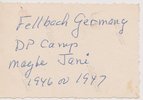 Fellbach Germany
DP Camp
maybe Jani
1946 or 1947